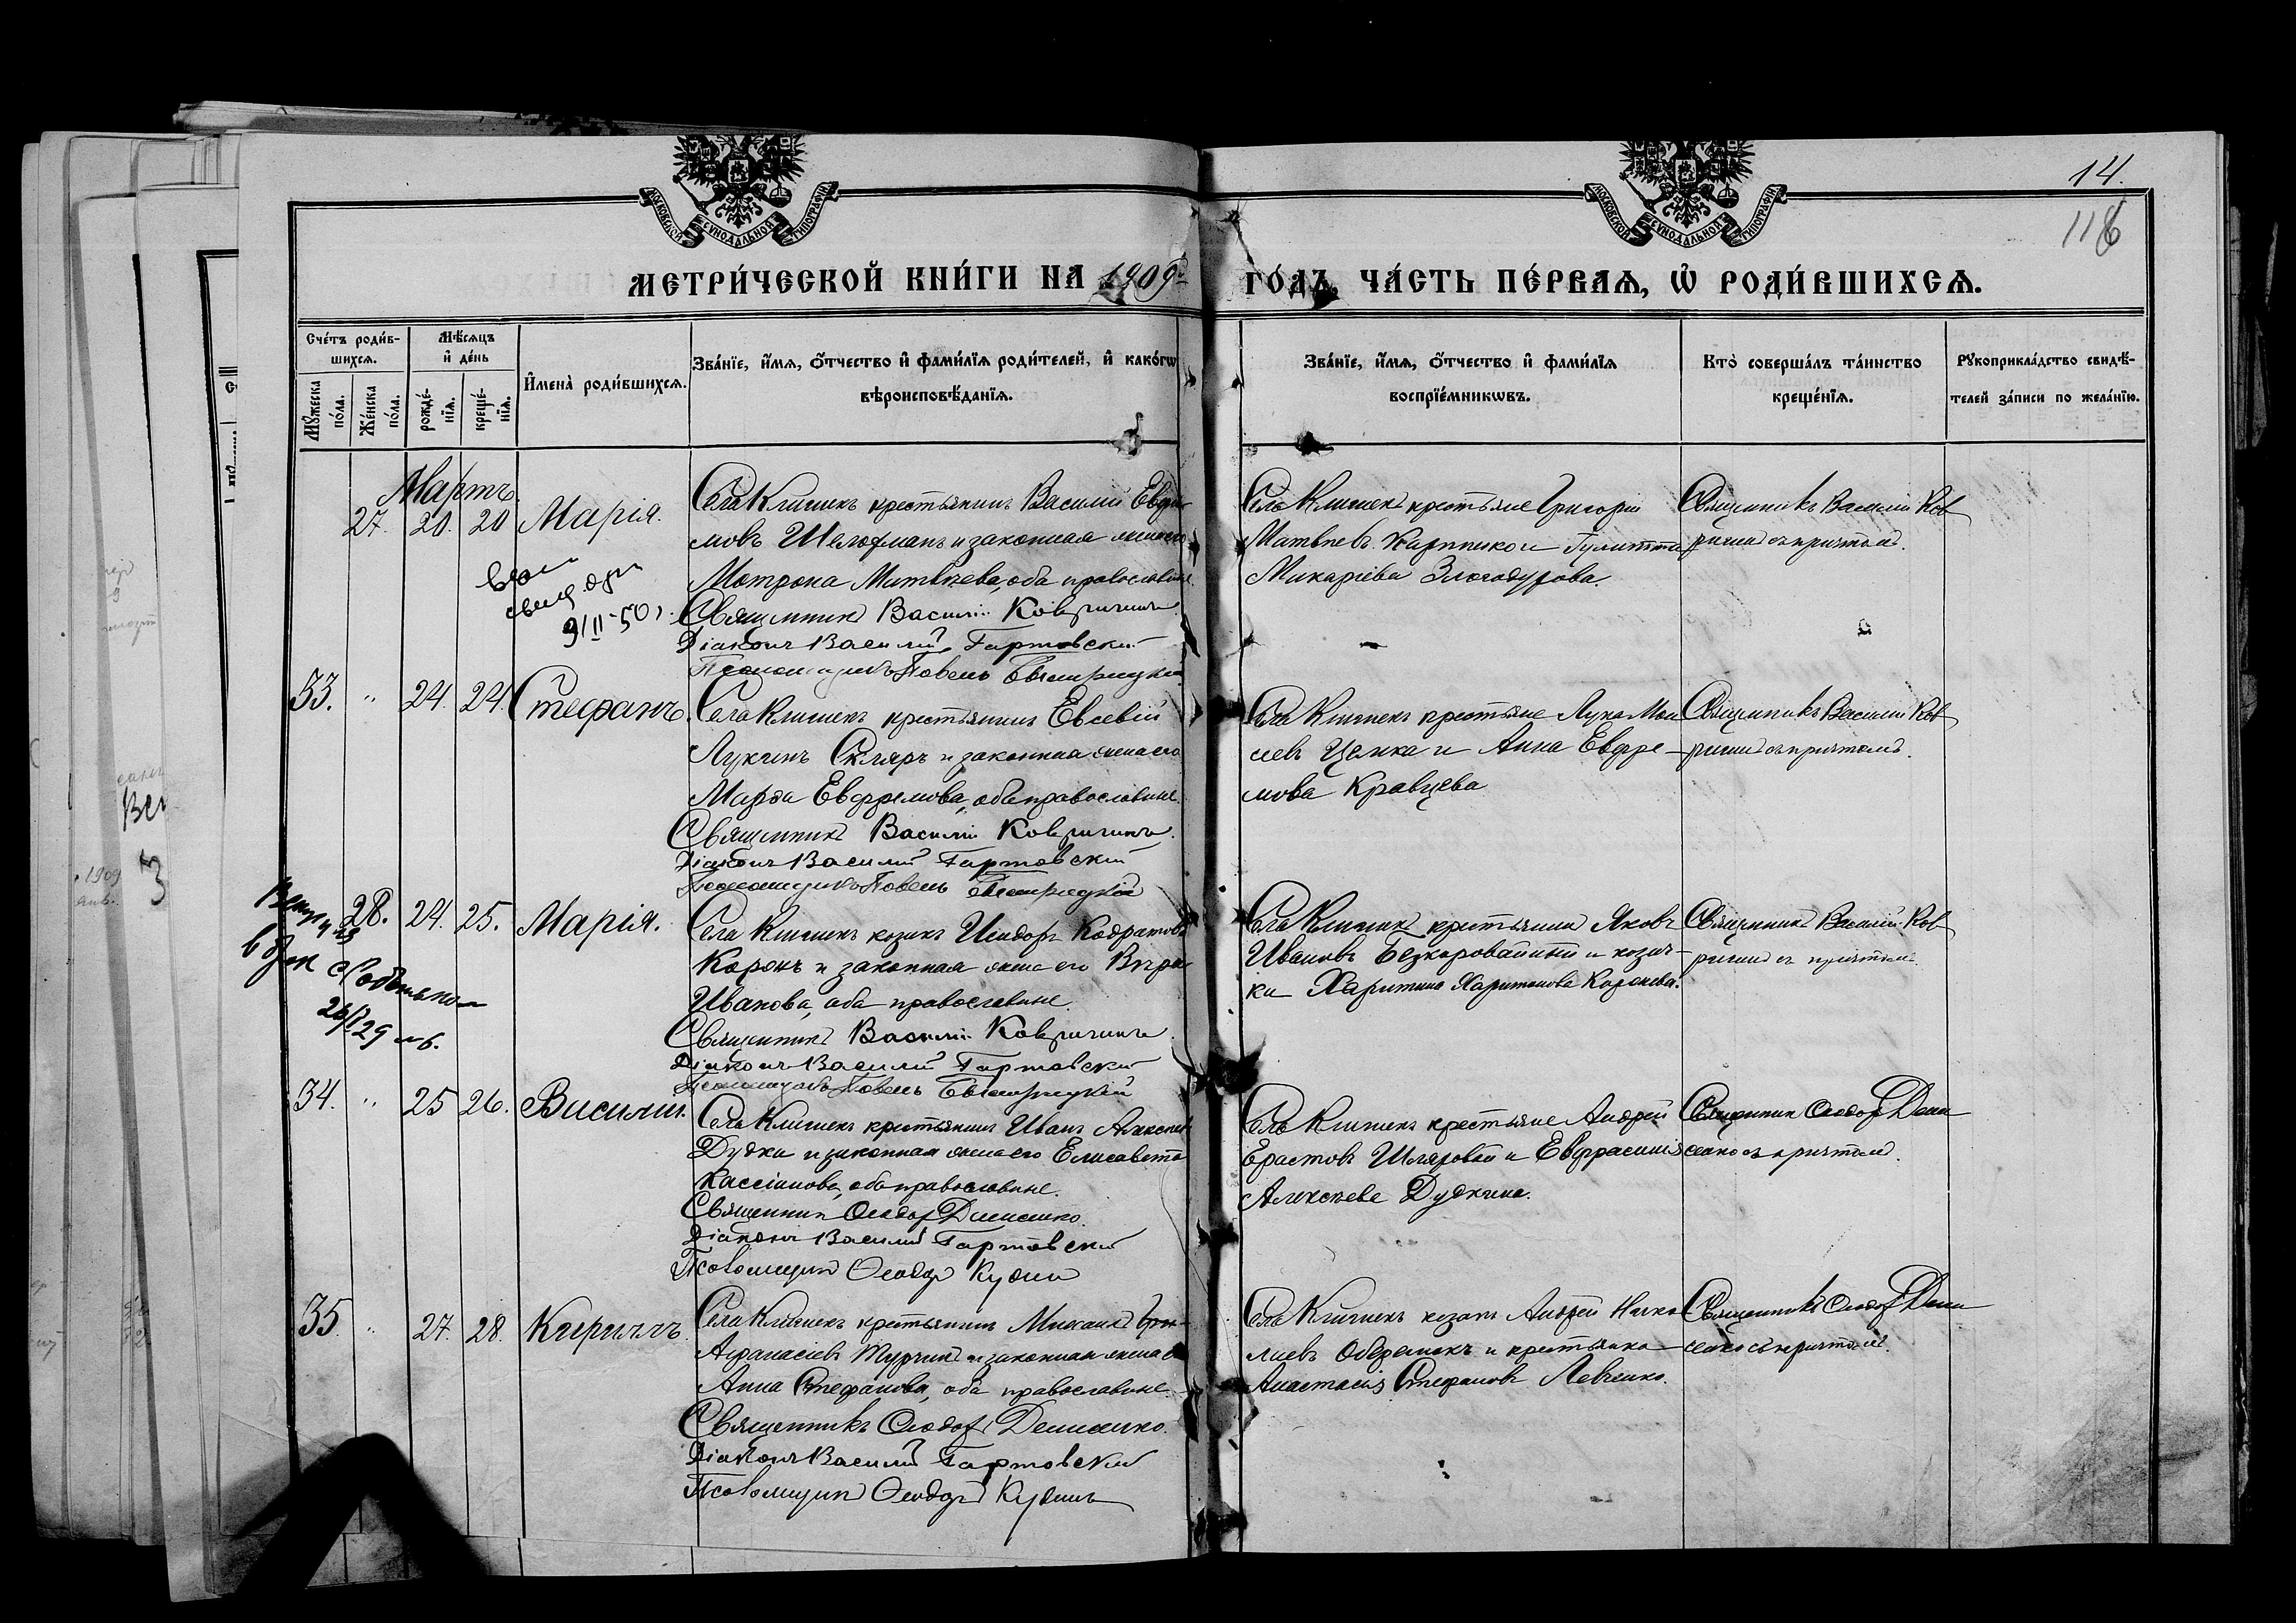 14.
118
МОСКОВСКОЙ СѴНОДАЛЬНОЙ ТИПОГРАФІИ
МОСКОВСКОЙ СѴНОДАЛЬНОЙ ТИПОГРАФІИ
МЕТРИ́ЧЕСКОЙ КНИ́ГИ НА 1909 г. ГО́ДЪ, ЧА́СТЬ ПЕ́РВАѦ, Ѡ҆ РОДИ́ВШИХСѦ.
Сче́тъ роди́в-
шихсѧ.
Мꙋ́жеска по́ла.
Же́нска по́ла.
Мѣ́сѧцъ
и҆ де́нь
рожде́-нїѧ.
креще́-нїѧ.
И҆мена̀ роди́вшихсѧ.
Зва́нїе, и҆́мѧ, ѻ҆́тчество и҆ фами́лїѧ роди́телей, и҆ како́гѡ
вѣроисповѣ́данїѧ.
Зва́нїе, и҆́мѧ, ѻ҆́тчество и҆ фами́лїѧ
воспрїе́мникѡвъ.
Кто̀ соверша́лъ та́инство
креще́нїѧ.
Рꙋкоприкла́дство свидѣ́-
телей за́писи по жела́нїю.
Мартъ.
27. 20. 20 Марія.
Села Клишекъ крестьянинъ Василій Евфи-
мовъ Шелюфманъ и законная жена его
Мотрона Матвѣева, оба православные.
Священникъ Василій Ковригинъ
Діаконъ Василій Гартовскій
Псаломщикъ Павелъ
Села Клишекъ крестьяне Григорій
Матвѣевъ Карпенко и Гулитта
Макаріева
Священникъ Василій Ков-
ригинъ съ причтомъ.
9/II-50 г.
33. " 24. 24. Стефанъ.
Села Клишекъ крестьянинъ Евсевій
Лукинъ Скляръ и законная жена его
Марѳа Евфремова, оба православные.
Священникъ Василій Ковригинъ.
Діаконъ Василій Гартовскій
Псаломщикъ Павелъ
Села Клишекъ крестьяне Лука Мои-
сеевъ Цапка и Анна Евфре-
мова Кравцева
Священникъ Василій Ков-
ригинъ съ причтомъ.
28. 24. 25. Марія.
Села Клишекъ козакъ Исидоръ Кодратовъ
Коронъ и законная жена его Вѣра
Иванова, оба православные.
Священникъ Василій Ковригинъ
Діаконъ Василій Гартовскій
Псаломщикъ Павелъ
Села Клишекъ крестьянинъ Яковъ
Ивановъ Безкоровайный и козач-
ка Харитина Харитонова Коронева.
Священникъ Василій Ков-
ригинъ съ причтомъ.
34. " 25 26. Василій.
Села Клишекъ крестьянинъ Иванъ Алексѣевъ
Дудка и законная жена его Елисавета
Кассіанова, оба православные.
Священникъ Ѳеодоръ Денисенко.
Діаконъ Василій Гартовскій
Псаломщикъ Ѳеодоръ Кудинъ
Села Клишекъ крестьяне Андрей
Ерастовъ Шляровой и Евфрасинія
Алексѣева Дудкина.
Священникъ Ѳеодоръ Дени-
сенко съ причтомъ.
35. " 27. 28. Кириллъ.
Села Клишекъ крестьянинъ Михаилъ
Афанасіевъ Турчинъ и законная жена его
Анна Стефанова, оба православные.
Священникъ Ѳеодоръ Денисенко.
Діаконъ Василій Гартовскій
Псаломщикъ Ѳеодоръ Кудинъ
Села Клишекъ козакъ Андрей Нико-
лаевъ Оберемокъ и крестьянка
Анастасія Стефанова Левченко.
Священникъ Ѳеодоръ Дени-
сенко съ причтомъ.